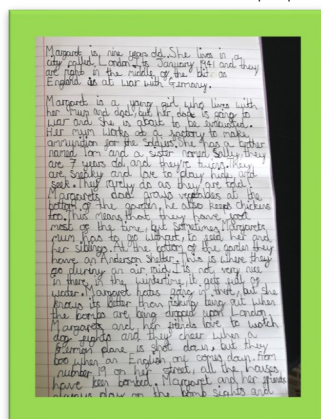 Margaret is nine years old. She lives in a
city called London. Its January 1941 and they
are right in the middle of the blitz as
England is at war with Germany.
Margaret is a young girl who lives with
her mum and dad, but her dad is going to
war and She about to be evacuated.
Her mum works at a factory to make
ammunition for the Soldiers. She has a brother
named Tom and a sister named Sally, they
are 7 years old and they're twins. They
are sneaky and love to play hide and
seek. They rarely do as they are told!
Margarets dad grows vegetables at the
bottom of the garden, he also keeps Chickens
too. This means that they have food
most of the time, but Sometimes Margarets
mum has to go without, to feed her and
her siblings. At the bottom of the garden they
have an Anderson Shelter. This is where they
go during an air raid. Is not very nice
in there, in the winter time, it gets full of
water. Margaret hates being in there, but she
knows its better than risking being out when
the bombs are being dropped upon London.
Margarets and her friends love to watch
dog fights and they cheer when a
German plane is shot down, but they
boo when an English one comes down. From
number 19 on her street, all the houses
have been bombed. Margaret and her friends
always play on the bomb sights and